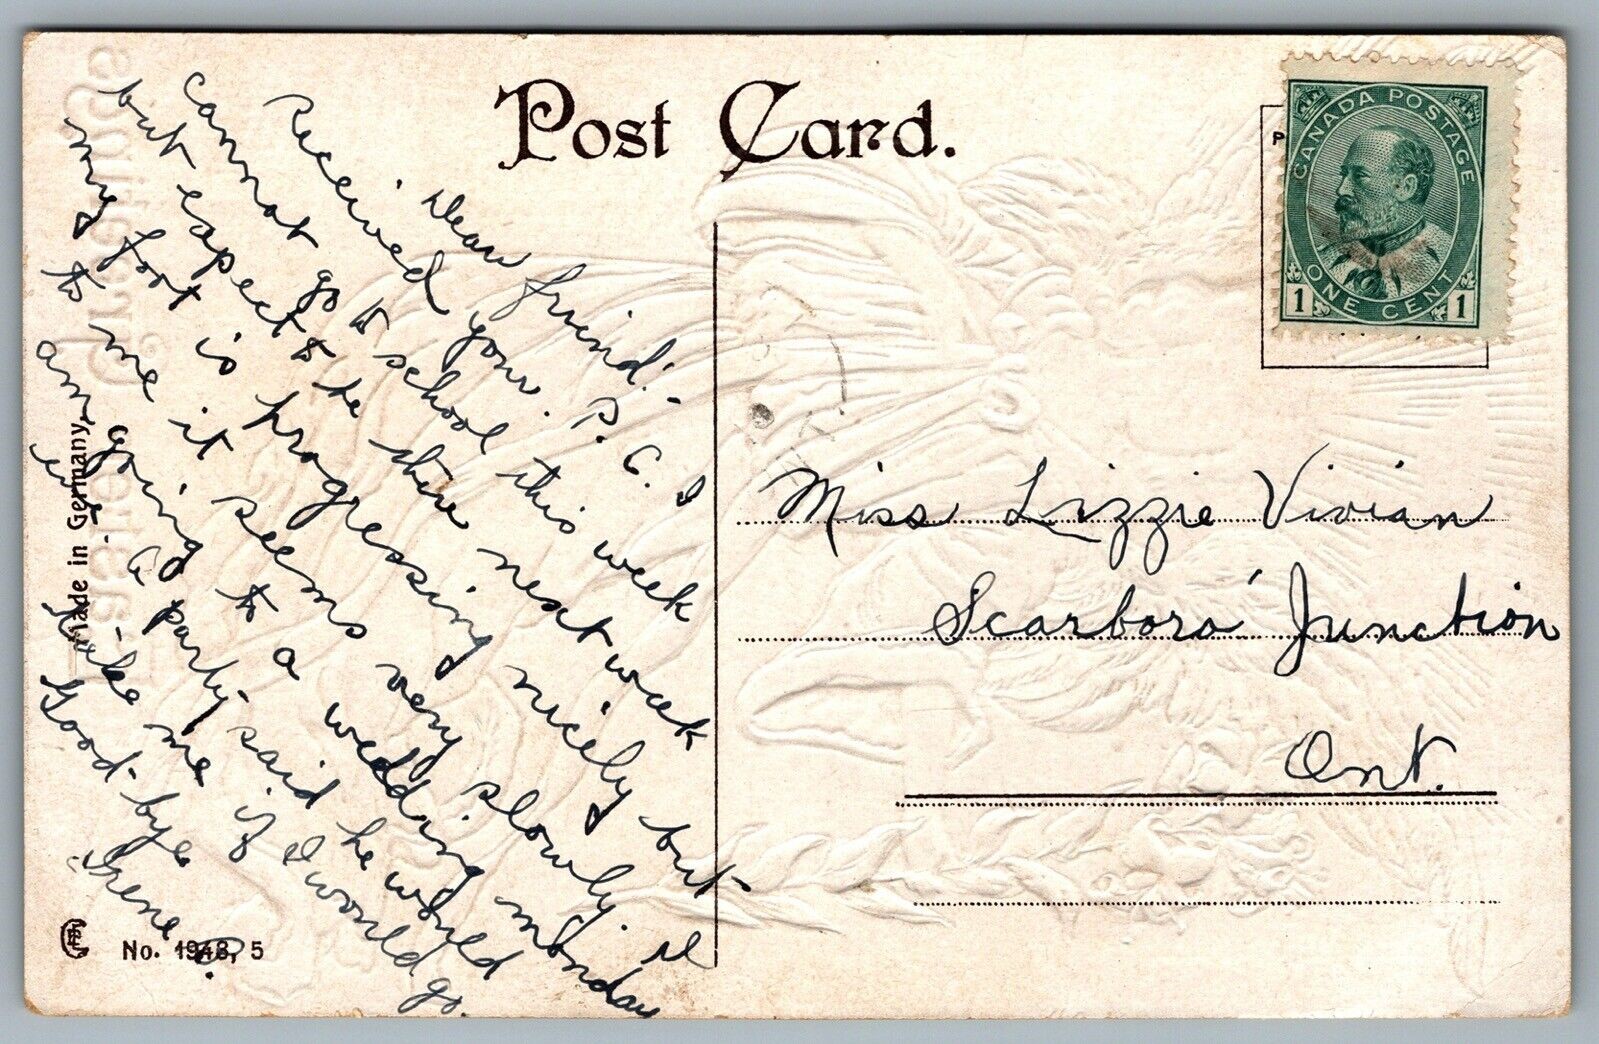 Post Card.
CANADA POSTAGE
ONE CENT
1 1
P
Dear friend:-
Received your P.C. I
cannot go to school this week
but expect to be there next week
my foot is progressing nicely but
to me it seems very slowly. I
am going to a wedding monday
a party said he would
take me if I would go.
Good-bye
Irene
Miss Lizzie Vivian
Scarboro' Junction
Ont.
Made in Germany,
No. 1948, 5